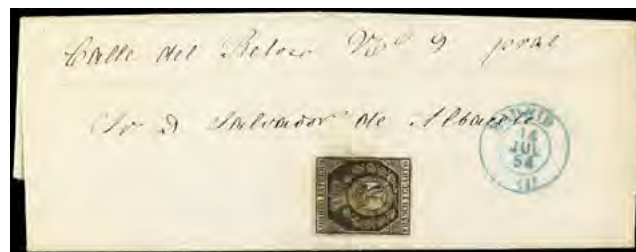 Calle del Reloj Nº 9 pral
Sr D Salvador de Albacete
MADRID
14
JUL
54
(1)